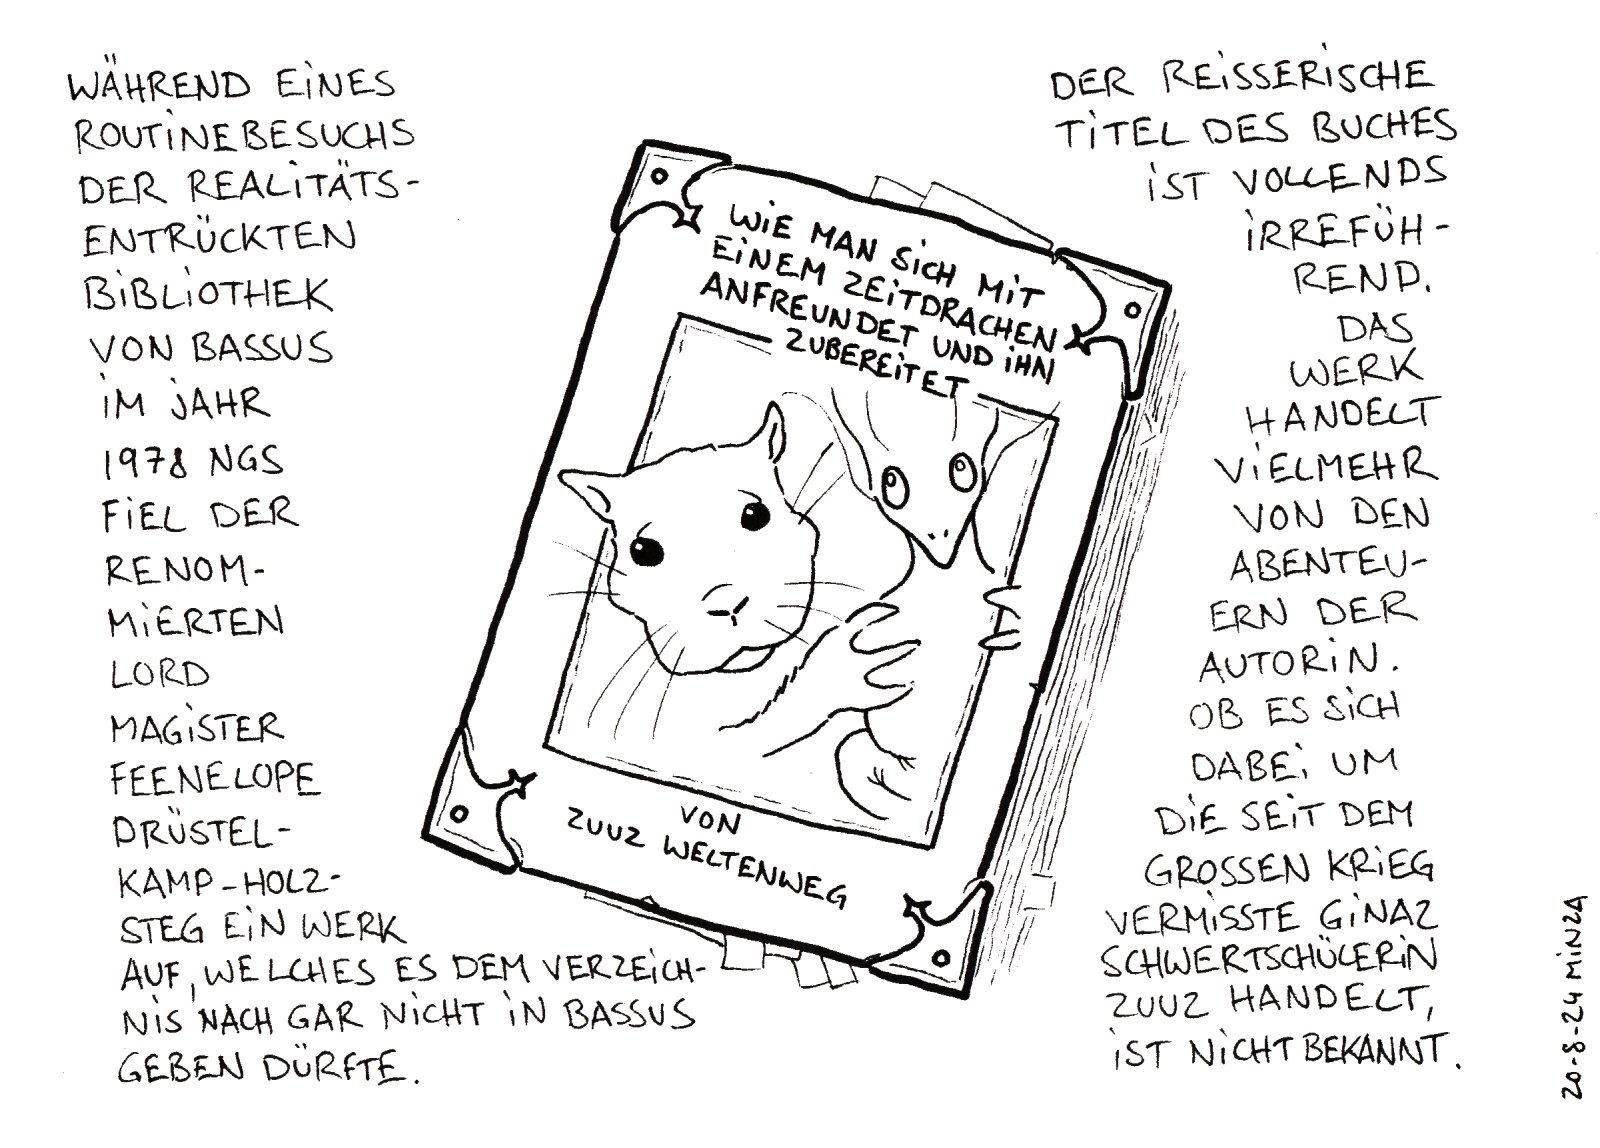 WÄHREND EINES
ROUTINEBESUCHS
DER REALITÄTS-
ENTRÜCKTEN
BIBLIOTHEK
VON BASSUS
IM JAHR
1978 NGS
FIEL DER
RENOM-
MIERTEN
LORD
MAGISTER
FEENELOPE
DRÜSTEL-
KAMP-HOLZ-
STEG EIN WERK
AUF, WELCHES ES DEM VERZEICH-
NIS NACH GAR NICHT IN BASSUS
GEBEN DÜRFTE.
WIE MAN SICH MIT
EINEM ZEITDRACHEN
ANFREUNDET UND IHN
ZUBEREITET
VON
ZUUZ WELTENWEG
DER REISSERISCHE
TITEL DES BUCHES
IST VOLLENDS
IRREFÜH-
REND.
DAS
WERK
HANDELT
VIELMEHR
VON DEN
ABENTEU-
ERN DER
AUTORIN.
OB ES SICH
DABEI UM
DIE SEIT DEM
GROSSEN KRIEG
VERMISSTE GINAZ
SCHWERTSCHÜLERIN
ZUUZ HANDELT,
IST NICHT BEKANNT.
20-8-24 MINZA